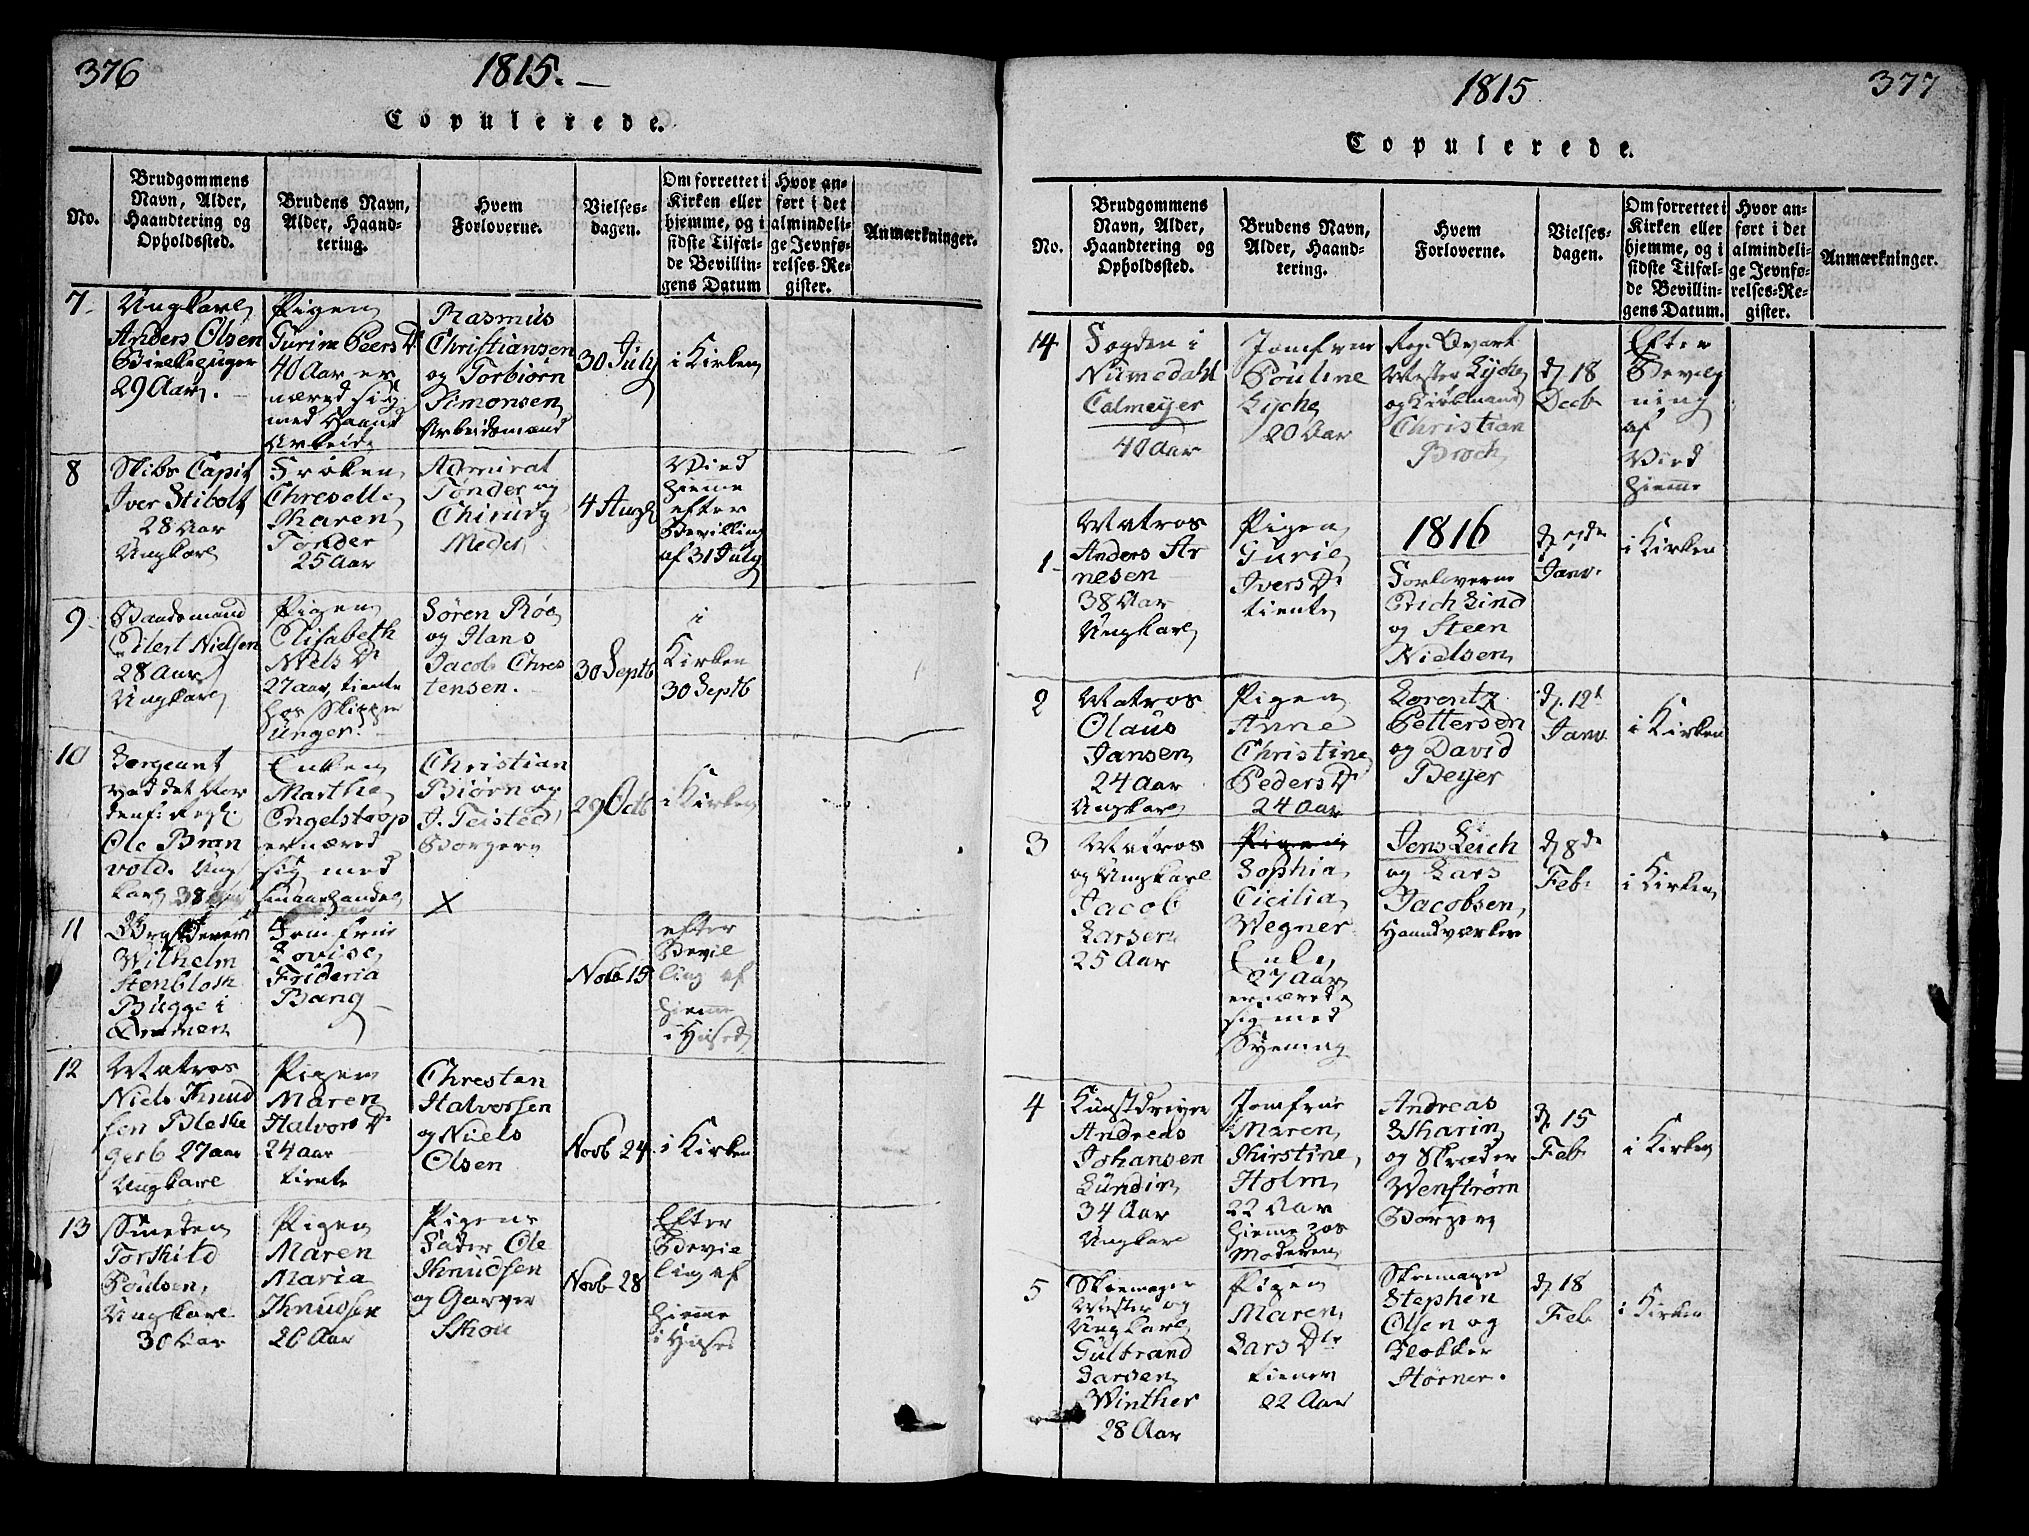 376
1815.
Copulerede.
No.
Brudgommens
Navn, Alder,
Haandtering og
Opholdssted.
Brudens Navn,
Alder, Haand-
tering.
Hvem
Forloverne.
Vielses-
dagen.
Om forrettet i
Kirken eller
hjemme, og i
sidste Tilfæl-
de Bevillin-
gens Datum
Hvor an-
ført i det
almindeli-
ge Jevnfø-
relses-Re-
gister.
Anmærkninger.
7
Ungkarl
Anders Olsen
29 Aar.
Pigen
Gurine Peers D
40 Aar er
næred sig
med Haand
Arbeide
Rasmus
Christiansen
og Torbiørn
Simonsen
Arbeidsmænd
30 July
i Kirken
8
Skibs Capit
Iver Stibolt
28 Aar
Ungkarl
Frøken
Karen
Tønder
25 Aar
Admiral
Tønder og
Chirurg
Meder
4 Aug
Vied
hiemme
efter
Bevilling
af 31 July
9
Baadsmand
Eilert Nielsen
28 Aar
Ungkarl
Pigen
Elisabeth
Niels D
27 aar, tiente
hos Skipper
Unger.
Søren Röe
og Hans
Jacob Chres
tensen.
30 Septb
i
Kirken
30 Septb
10
Sergeant
ved det Nor
denf: Reg:
Ole Bran
vold. Ung
karl 38 aar
Enken
Marthe
Engelstrop
ernæred
sig med
smaahandel
Christian
Biörn og
J. Teisted
Borgere
29 Octb
i Kirken
11
Wilhelm
Stenbloch
Bugge i
Jomfrue
Lovise
Frideria
Bang
X
Novb 15
efter
Bevil
ling af
hiemme
i Huset
12
Matros
Niels Knud
sen Bleke
gerb 27 aar
Ungkarl
Pigen
Maren
Halvors D
24 aar
tiente
Chresten
Halvorsen
og Niels
Olsen
Novb 24
i Kirken
13
Smeden
Torkild
Poulsen,
Ungkarl
30 Aar
Pigen
Maren
Maria
Knudsen
26 Aar
Pigens
Fader Ole
Knudsen
og Garver
Skou
Novb 28
Efter
Bevil
ling af
hiemme
i Huset
1815
377
Copulerede.
No.
Brudgommens
Navn, Alder,
Haandtering og
Opholdssted.
Brudens Navn,
Alder, Haand-
tering.
Hvem
Forloverne.
Vielses-
dagen.
Om forrettet i
Kirken eller
hjemme, og i
sidste Tilfæl-
de Bevillin-
gens Datum.
Hvor an-
ført i det
almindeli-
ge Jevnfø-
relses-Re-
gister.
Anmærkninger.
14
Fogden i
Numedahl
Calmeyer
40 Aar
Jomfrue
Pouline
Lyche
20 Aar
Reg. Qvart
Mester Lyche
og Kiøbmand
Christian
Broch
d. 18
Decb
Efter
Bevilg
ning
af
Vied
hiemme
1816
1
Matros
Anders Ar
nesen
38 Aar
Ungkarl
Pigen
Gurie
Ivers D
tiente
Forloverne
Erich Lind
og Steen
Nielsen
Janv.
i Kirken
2
Matros
Olaus
Jansen
24 Aar
Ungkarl
Pigen
Anne
Christine
Peders D
24 Aar
Lorentz
Pettersen
og David
Beyer
d. 12t
Janv
i Kirken
3
Matros
og Ungkarl
Jacob
Larsen
25 Aar
Pigen
Sophia
Cicilia
Wegner
Enke,
27 Aar
ernærede
sig med
Syening
Jens Leich
og Lars
Jacobsen,
Haandværker
d 8de
Feb.
i Kirken
4
Kunstdreyer
Andreas
Johansen
Lundin
34 Aar
Ungkarl
Jomfrue
Maren
Kirstine,
Holm
22 Aar
hiemme hos
Moderen
Andreas
og Skræder
Wenstrøm
Borgere
d. 15
Feb.
i Kirken
5
Skoemager
Mester og
Ungkarl
Gulbrand
Larsen
Winther
28 Aar
Pigen
Maren,
Lars Dtr
tiener
22 Aar
Skoemager
Stephen
Olsen og
Klokker
Hörner.
d. 18
Feb.
i Kirken